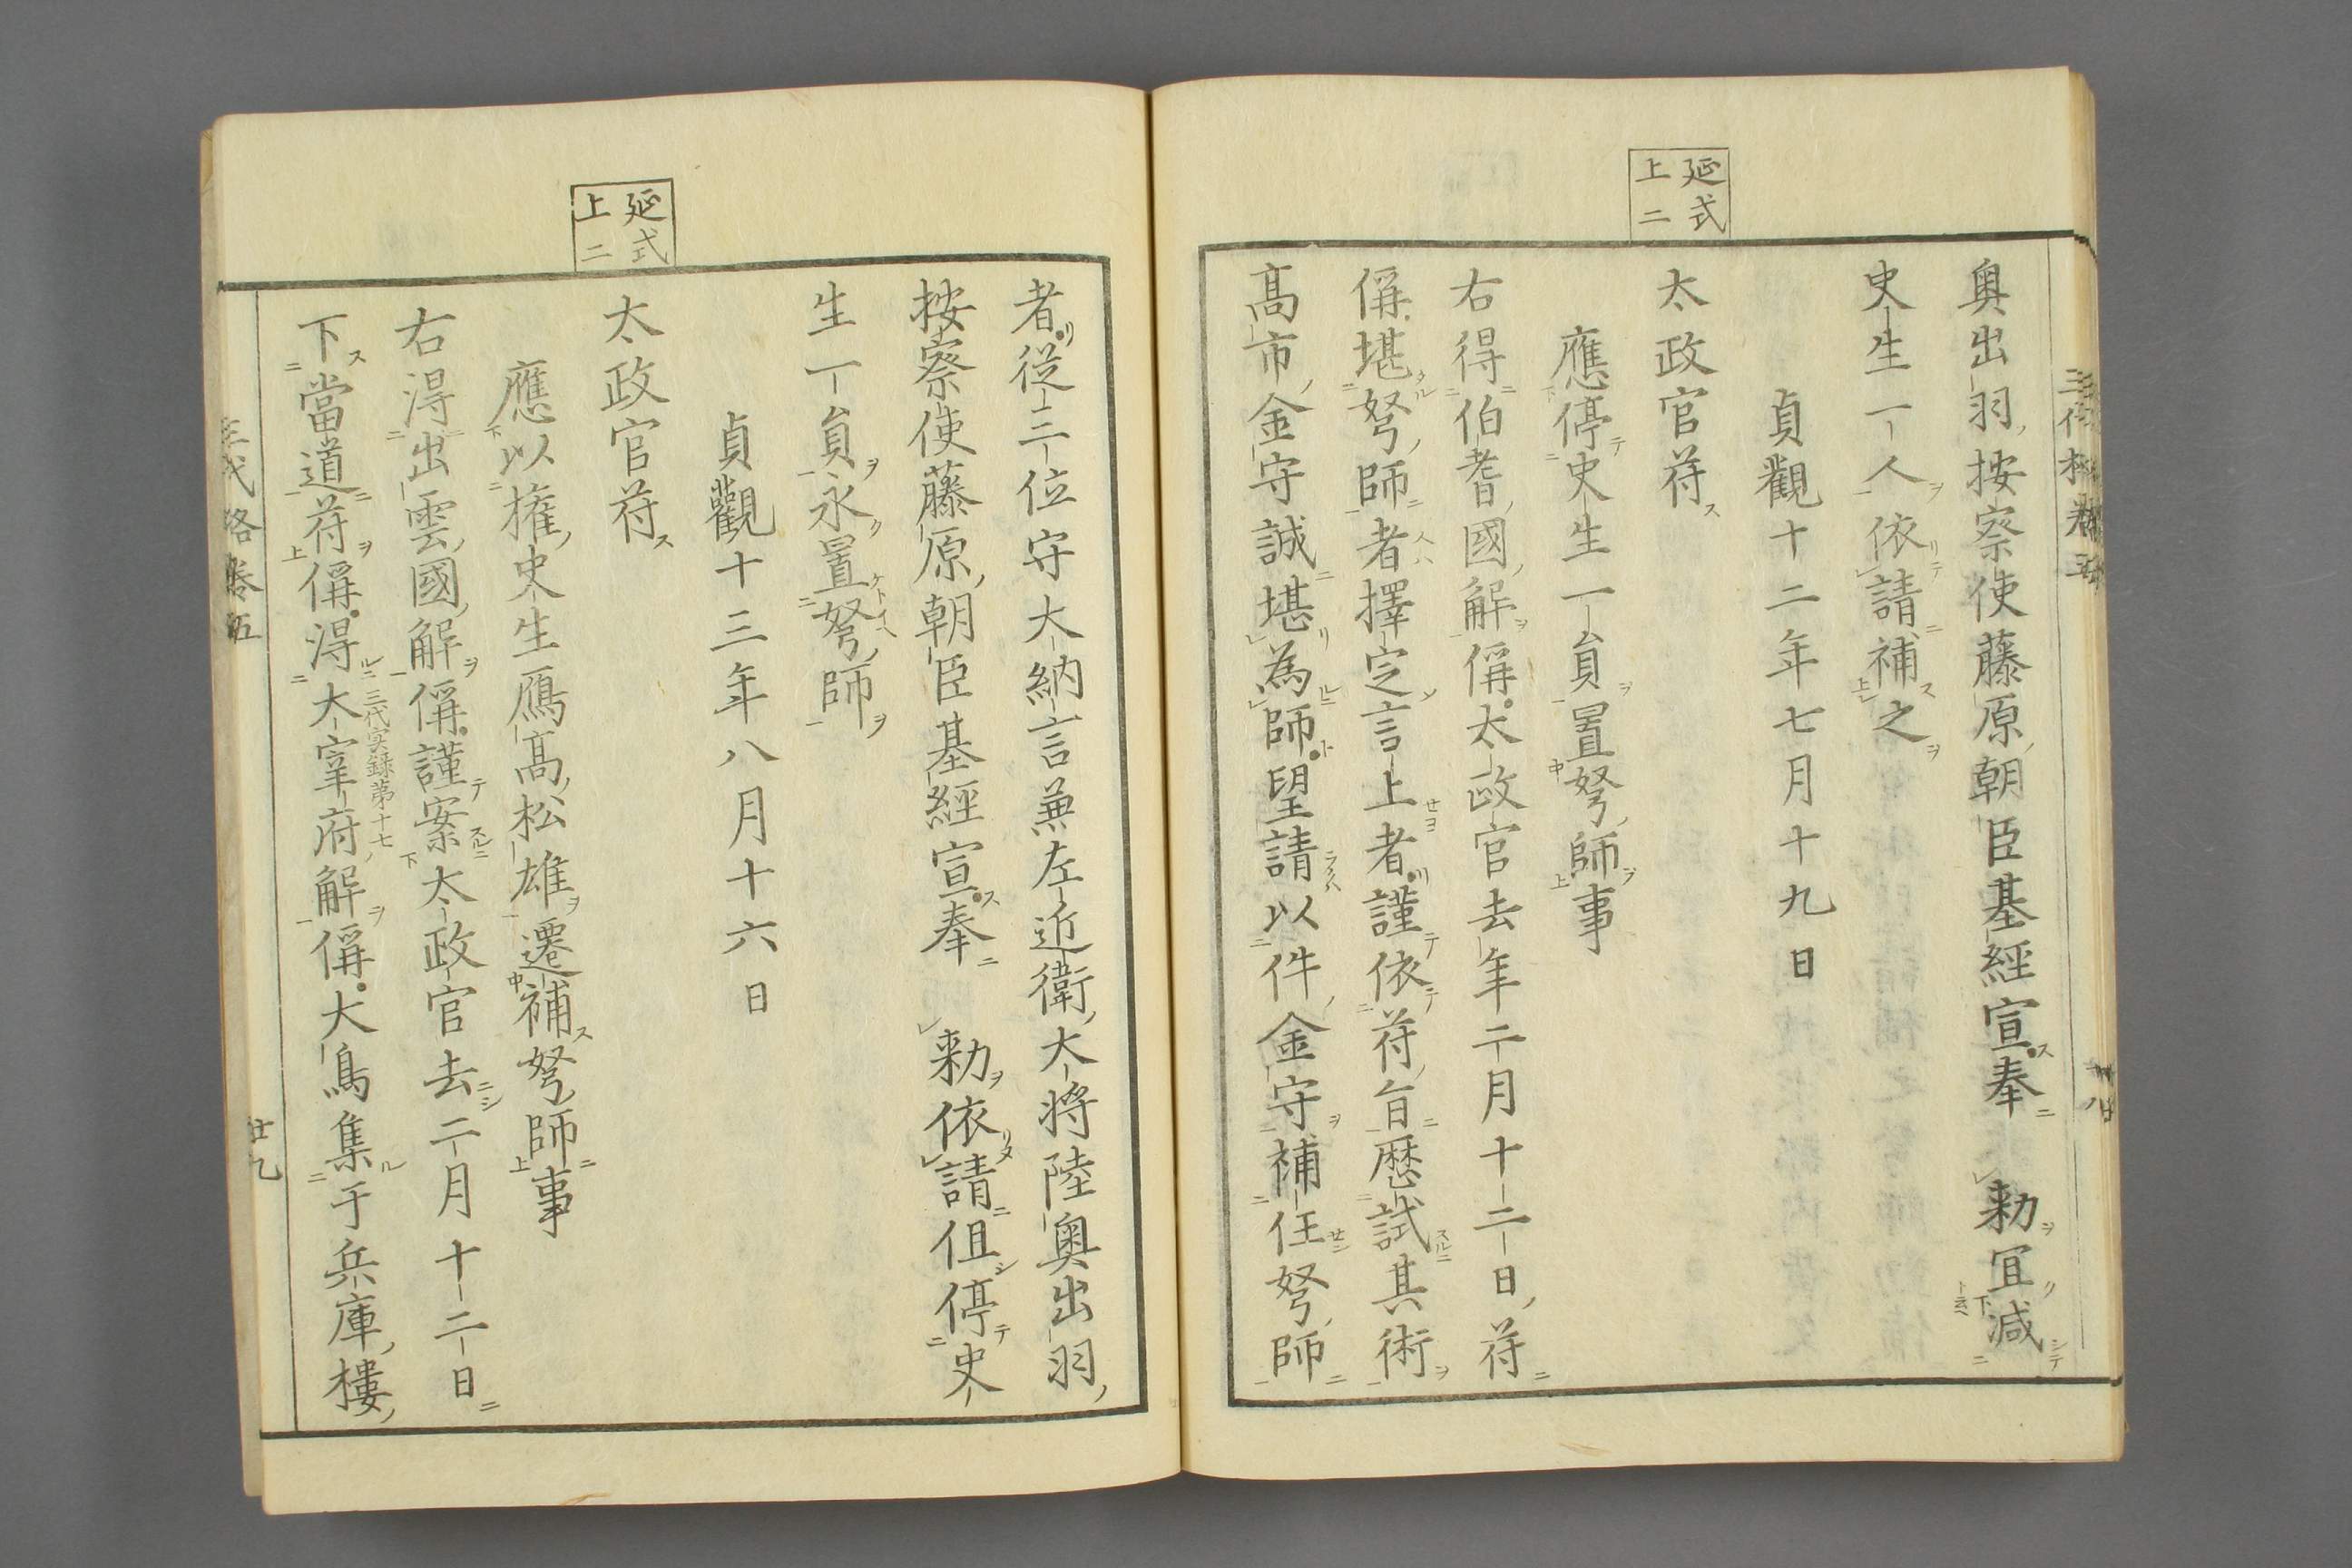 延式
上二
奥出羽按察使藤原朝臣基經宣奉　勅冝减
史生一人依請補之
貞觀十二年七月十九日
太政官苻
應停史生一員置弩師事
右得伯耆國解偁太政官去年二月十二日苻
偁堪弩師者擇定言上者謹依苻旨歴試其術
髙市金守誠堪為師望請以件金守補任弩師
延式
上二
者從三位守大納言兼左近衛大將陸奥出羽
按察使藤原朝臣基經宣奉　勅依請但停史
生一員永置弩師
貞觀十三年八月十六日
太政官苻
應以權史生鴈髙松雄遷補弩師事
右淂出雲國解偁謹案太政官去二月十二日
下當道苻偁淂大宰府解偁大鳥集于兵庫樓
三代実録第十七
廿九